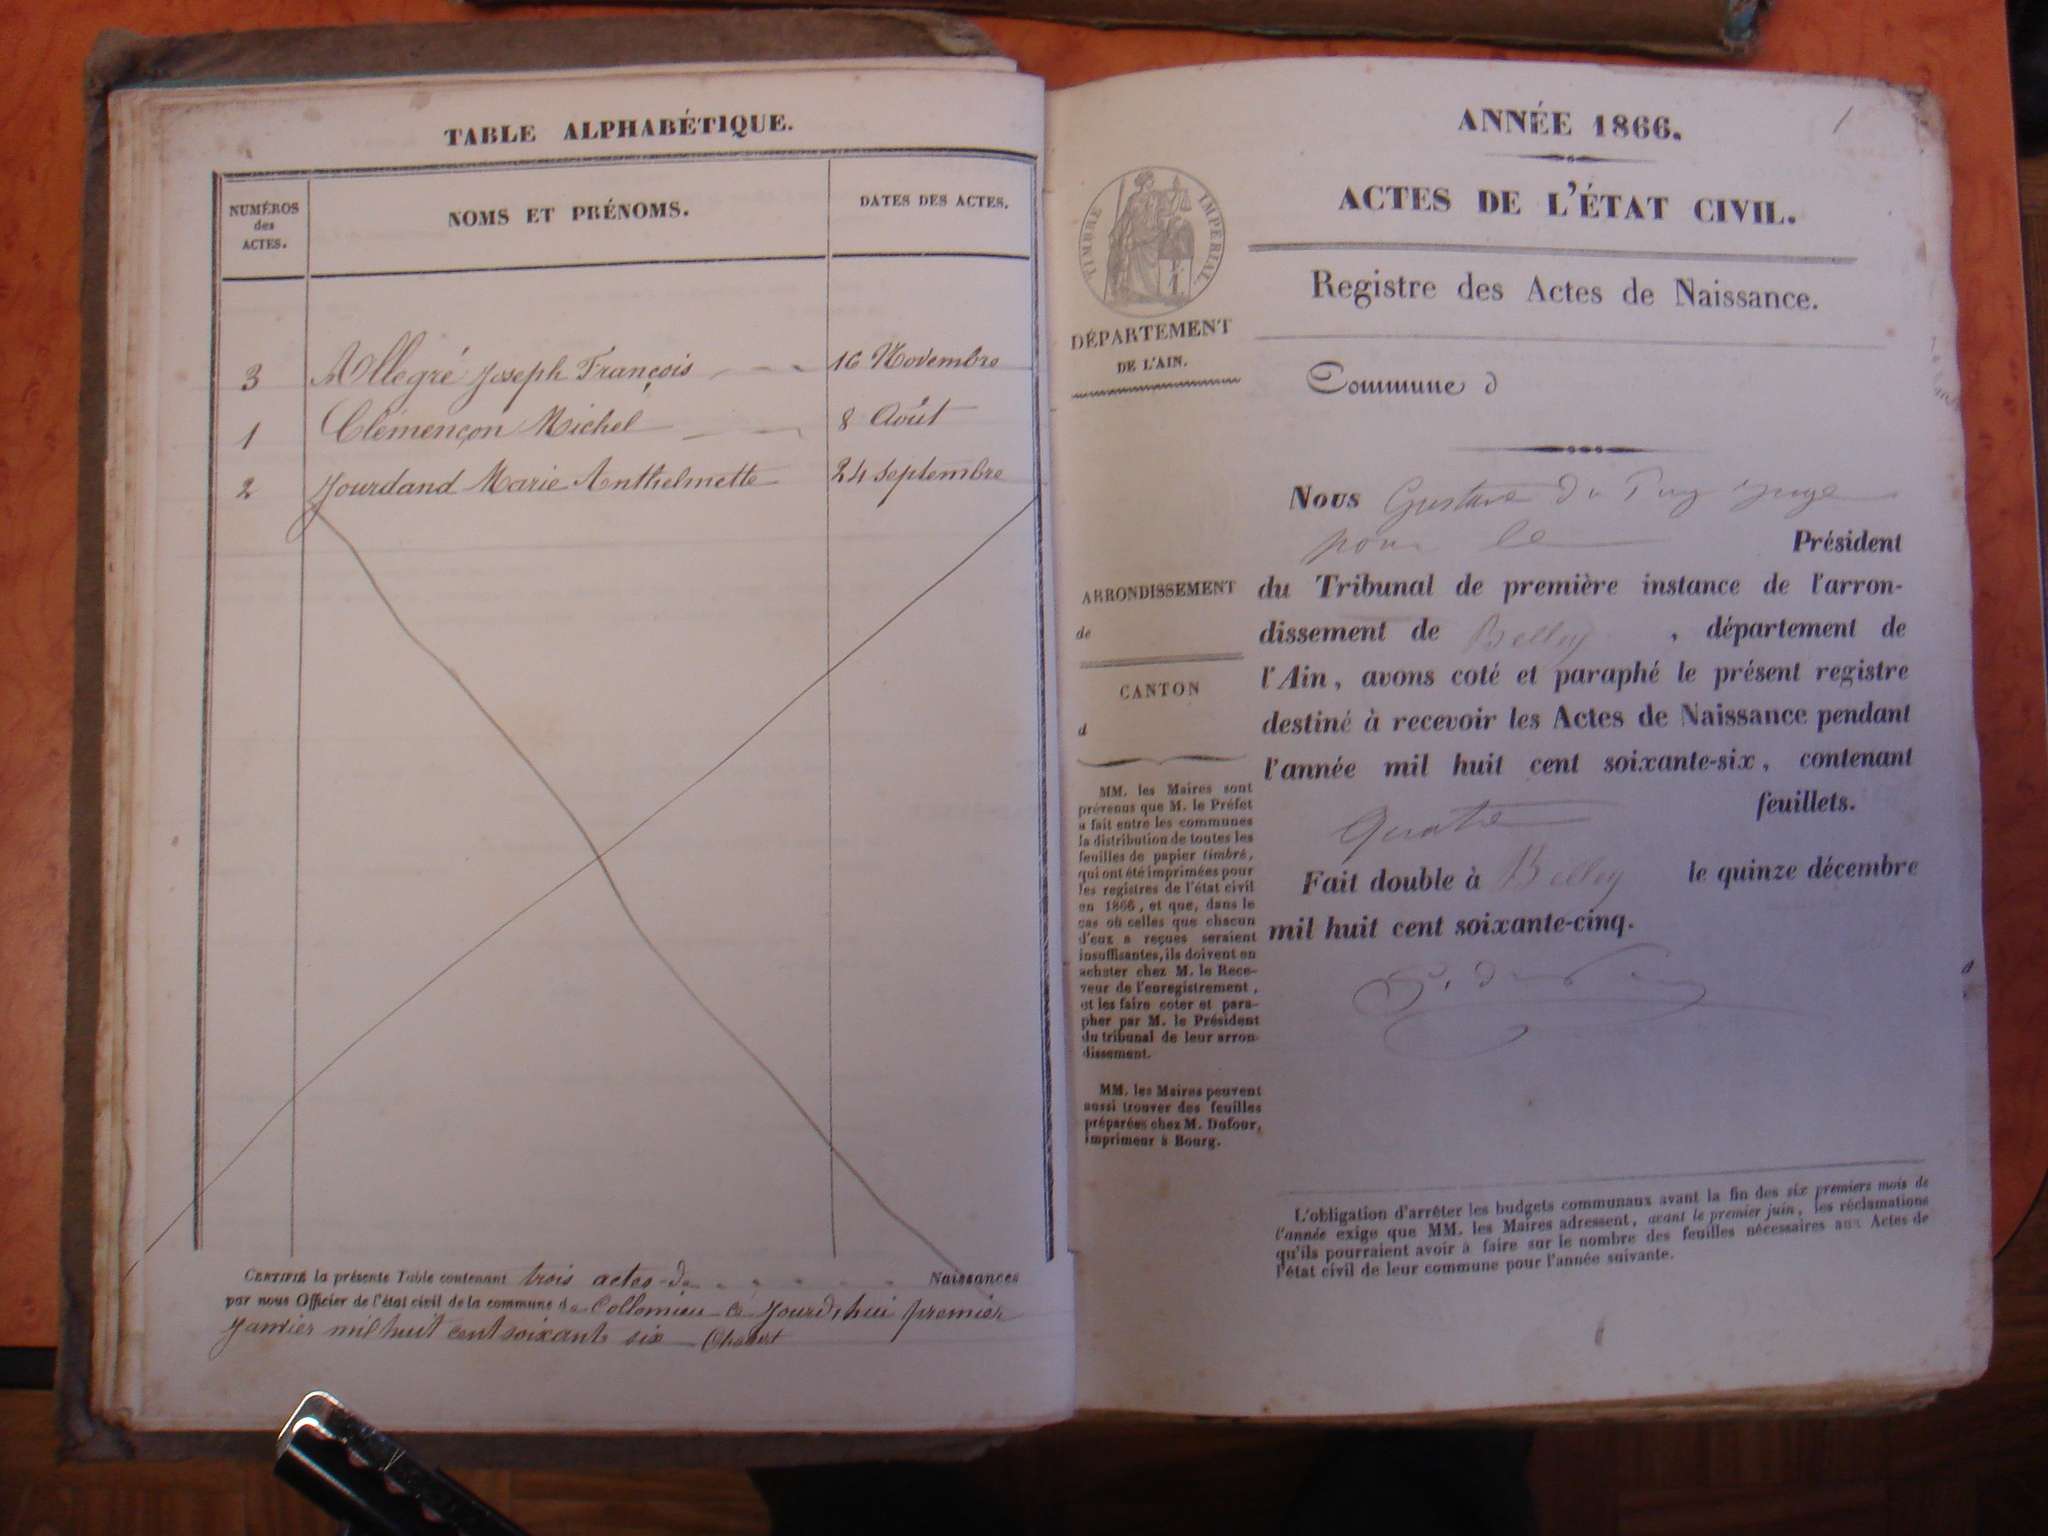 TABLE ALPHABÉTIQUE.
NUMÉROS
des
ACTES.
NOMS ET PRÉNOMS.
DATES DES ACTES.
3 Allegré Joseph François 16 Novembre
1 Clémençon Michel 8 Août
2 Jourdand Marie Anthelmette 24 Septembre
CERTIFIÉ la présente Table contenant trois actes de Naissances
par nous Officier de l'état civil de la commune de Collomieu ce jourd'hui premier
Janvier mil huit cent soixante six Chabert
1
ANNÉE 1866.
ACTES DE L'ÉTAT CIVIL.
Registre des Actes de Naissance.
TIMBRE IMPÉRIAL
DÉPARTEMENT
DE L'AIN.
Commune d
ARRONDISSEMENT
de
CANTON
d
MM. les Maires sont
prévenus que M. le Préfet
a fait entre les communes
la distribution de toutes les
feuilles de papier timbré,
qui ont été imprimées pour
les registres de l'état civil
en 1866, et que, dans le
cas où celles que chacun
d'eux a reçues seraient
insuffisantes, ils doivent en
acheter chez M. le Rece-
veur de l'enregistrement,
et les faire coter et para-
pher par M. le Président
du tribunal de leur arron-
dissement.
MM. les Maires peuvent
aussi trouver des feuilles
préparées chez M. Dufour,
imprimeur à Bourg.
Nous Gustave du Puy juge
pour le Président
du Tribunal de première instance de l'arron-
dissement de Belley, département de
l'Ain, avons coté et paraphé le présent registre
destiné à recevoir les Actes de Naissance pendant
l'année mil huit cent soixante-six, contenant
quatre feuillets.
Fait double à Belley le quinze décembre
mil huit cent soixante-cinq.
L'obligation d'arrêter les budgets communaux avant la fin des six premiers mois de
l'année exige que MM. les Maires adressent, avant le premier juin, les réclamations
qu'ils pourraient avoir à faire sur le nombre des feuilles nécessaires aux Actes de
l'état civil de leur commune pour l'année suivante.